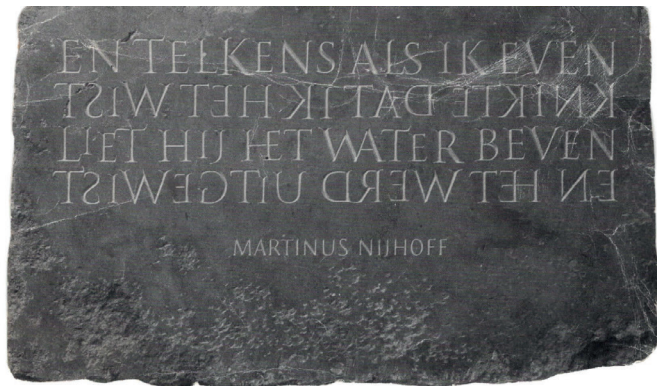 EN TELKENS ALS IK EVEN
KNIKTE DAT IK HET WIST
LIET HIJ HET WATER BEVEN
EN HET WERD UITGEWIST
MARTINUS NIJHOFF